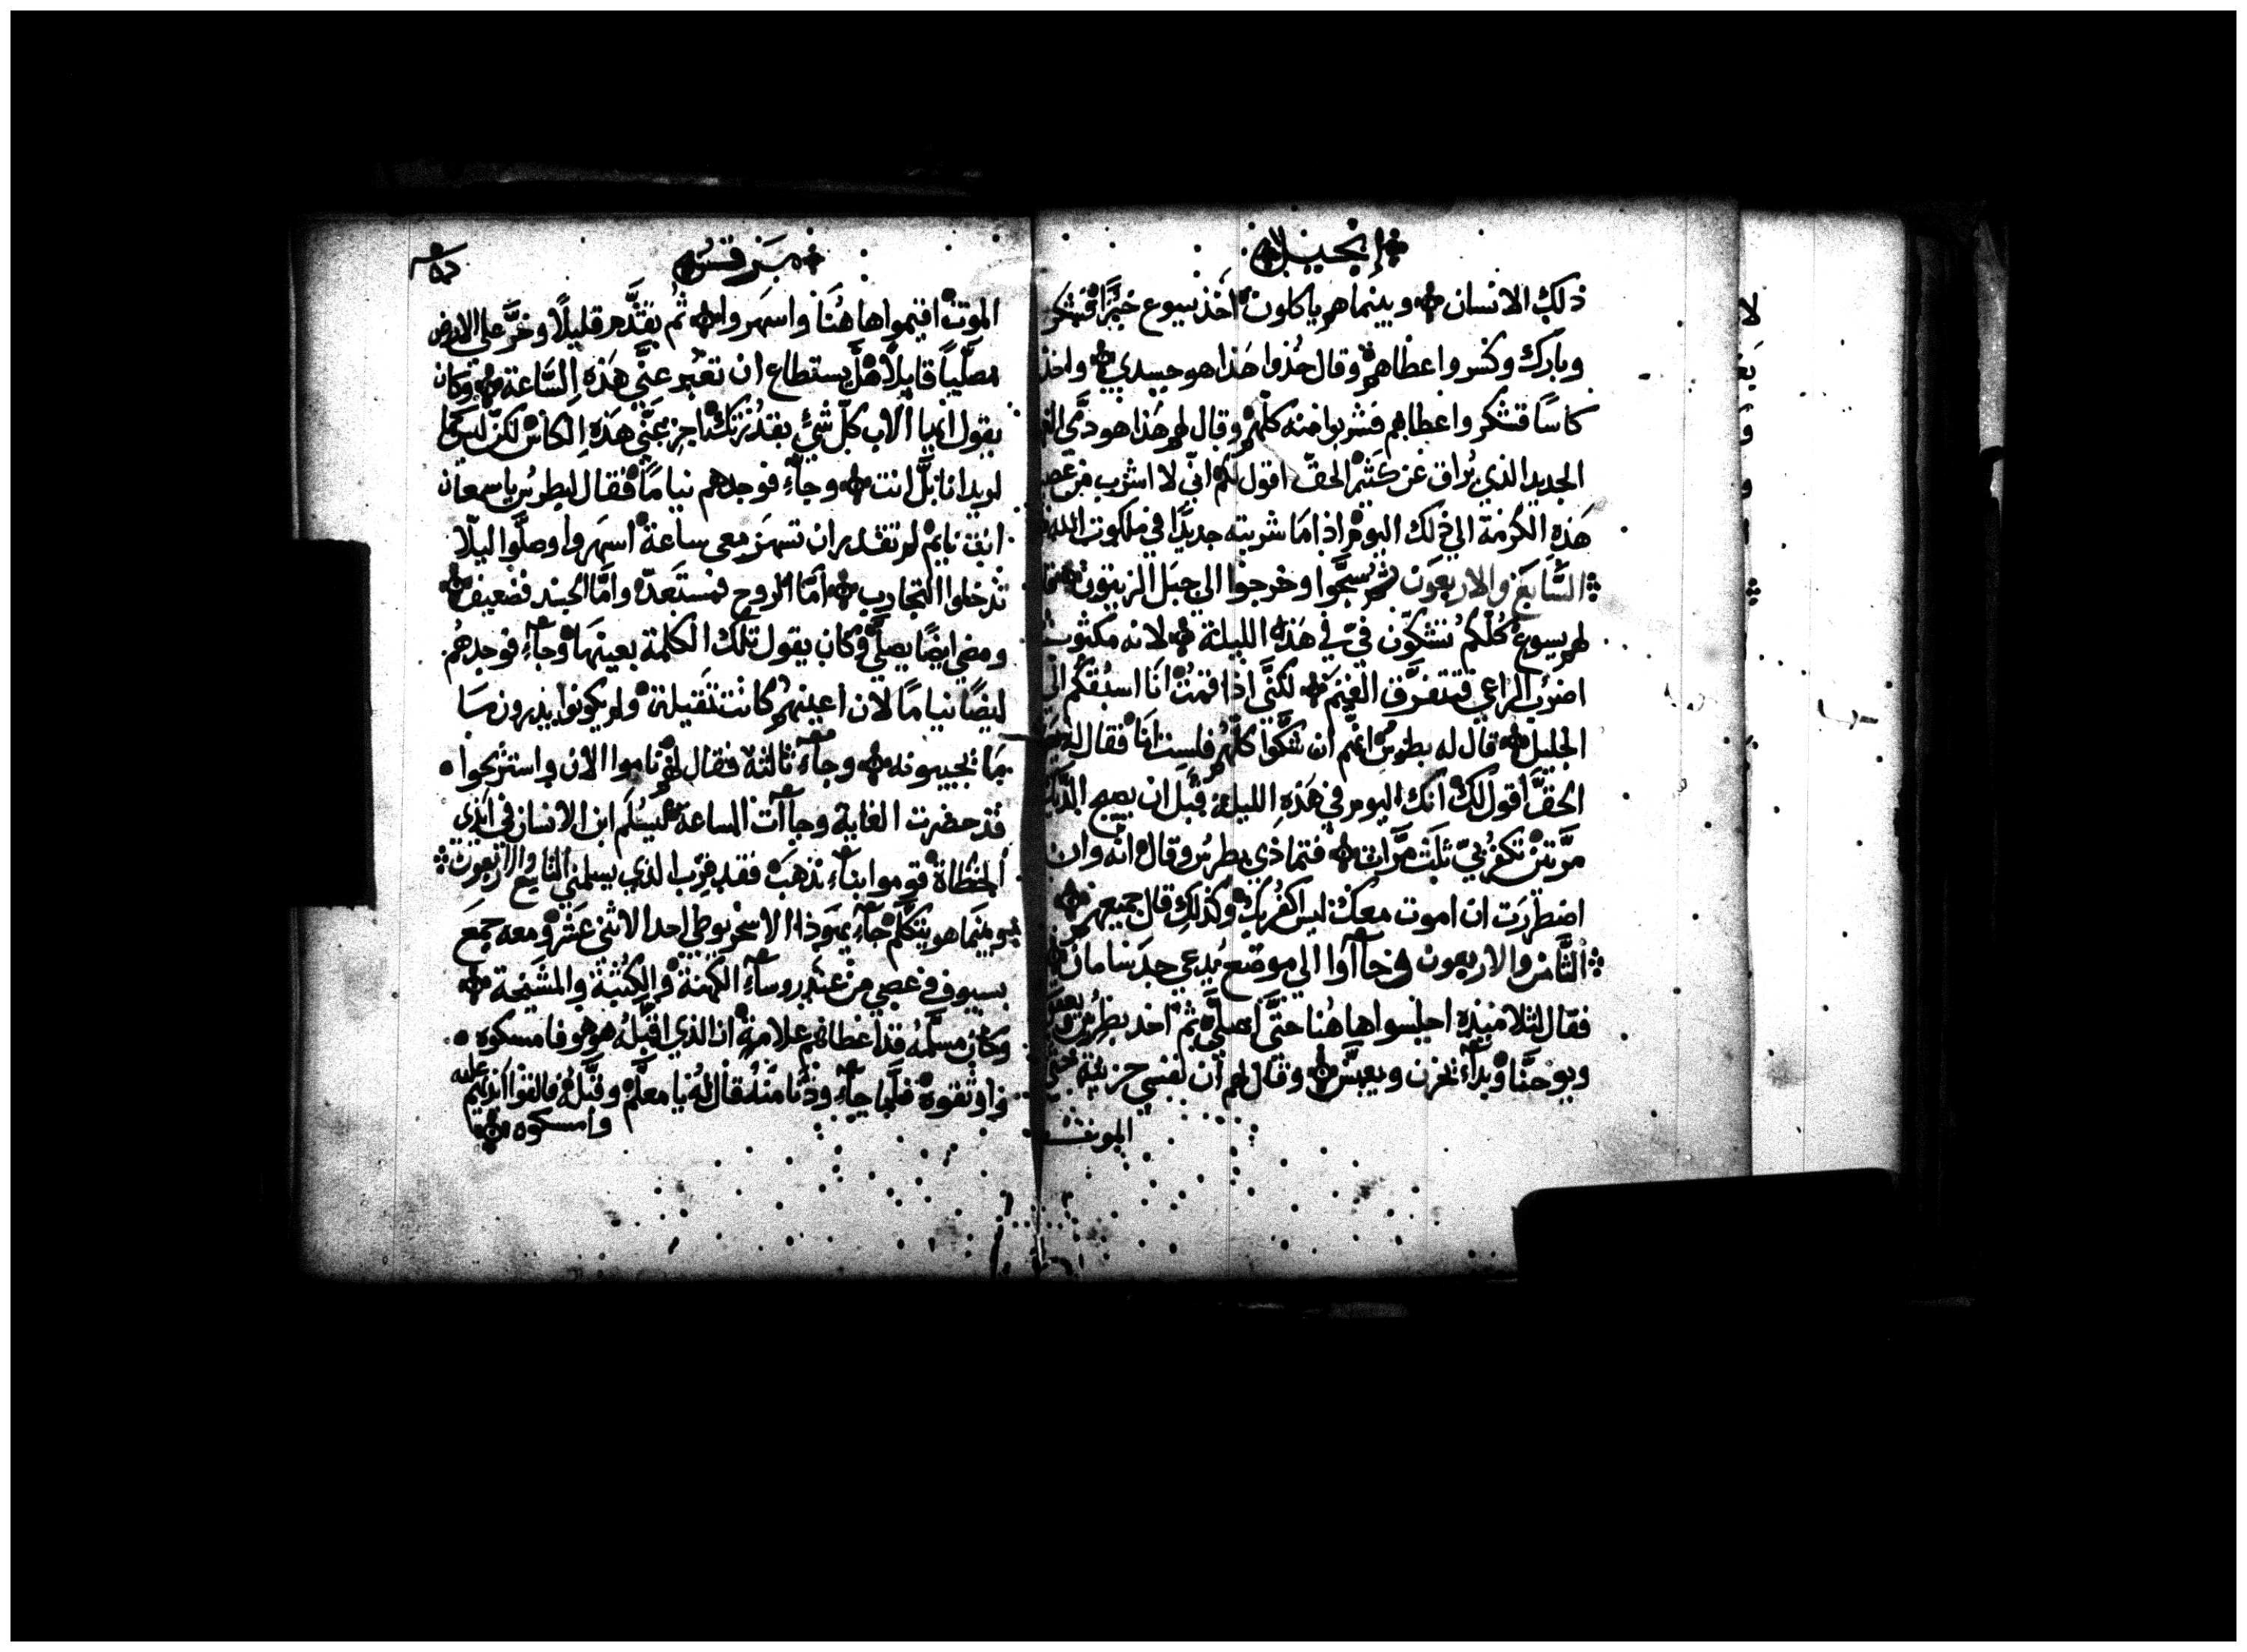 إنجيل
ذلك الانسان وبينما هم ياكلون اخذ يسوع خبزًا فشكر
وبارك وكسر واعطاهم وقال خذوا هذا هو جسدي واخذ
كاسًا فشكر واعطاهم فشربوا منه كلّهم وقال لهم هذا هو دمّي
الجديد الذي يُراق عن كثير الحقّ اقول لكم انّي لا اشرب من عصير
هذه الكرمة الي ذلك اليوم اذا ما شربته جديدًا في ملكوت الله
السَّابع والاربعون ثم سبّحوا وخرجوا الي جبل الزيتون
لهم يسوع كلّكم تشكّون فيّ في هذه الليلة لانه مكتوب
اضرب الراعي فتتفرّق الغنم لكنّي اذا قمتُ انا اسبقكم الي
الجليل قال له بطرس انهم ان شكّوا كلّهم فلست انا فقال له
الحقّ اقول لك انك اليوم في هذه الليلة قبل ان يصيح الدّيك
مرّتين تكفر بيّ ثلث مرّات فتماذي بطرس وقال انّه وان
اضطررت ان اموت معك ليس اكفر بك وكذلك قال جميعهم
الثَّامن والاربعون وجاآوا الي موضع يُدعي جدسامان
فقال لتلاميذه اجلسوا هاهُنا حتّي اصلّي ثم اخد بطرس ويعقوب
ويوحنّا وبدآء يحزن ويعبّس وقال لهم ان نفسي حزينة حتي
الموت
مرقس
الموت اقيموا هاهُنَا واسهَروا ثم تقدّم قليلًا وخرّ علي الارض
مصلّيًا قايلًا هل يستطاع ان تعبر عنّي هذه السّاعة وكان
يقول ايها الآب كلّ شيءٍ بقدرتك اجز عنّي هذه الكاس لكن ليس كما
اريد انا بل انت وجآء فوجدهم نيامًا فقال لبطرس يا سمعان
انت نايم لم تقدر ان تسهر معي ساعة اسهَروا وصلّوا ليلّا
تدخلوا التجارب امّا الروح فمستعدّة وامّا الجسد فضعيف
ومضي ايضًا يصلّي وكان يقول تلك الكلمة بعينها وجآء فوجدهُم
ايضًا نيامًا لان اعينهم كانت ثقيلة ولم يكونوا يدرون
بما يجيبونه وجآء ثالثة فقال لهم ناموا الان واستريحوا
قد حضرت الغاية وجاآت الساعة ليُسلم ابن الانسان في ايدي
الخطاة قوموا بنآء نذهب فقد قرب الذي يسلمني التاسع والاربعون
وبينما هو يتكلّم جآء يهوذا الاسخريوطي احد الاثني عشر ومعه جمع
بسيوف وعصي من عند روسآء الكهنة والكتبة والمشيخة
وكان مسلّمه قد اعطاهم علامة ان الذي اقبّله هو هو فامسكوه
واوثقوه فلمّا جآء ودنا منه قال له يا معلّم وقبّله فالقوا ايديهم عليه
وامسكوه